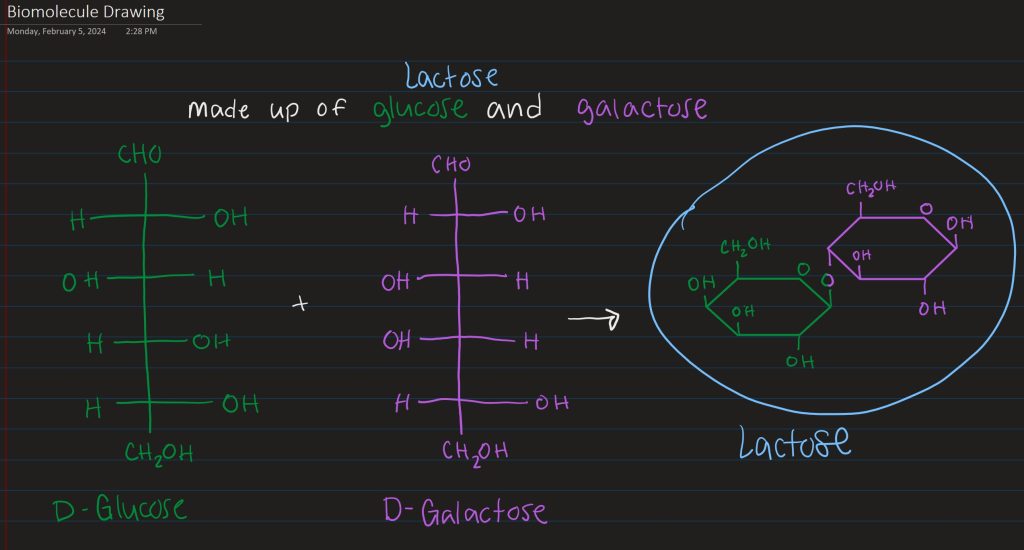 Biomolecule Drawing
Monday, February 5, 2024 2:28 PM
Lactose
made up of glucose and galactose
CHO
H OH
OH H
H OH
H OH
CH₂OH
D-Glucose
+
CHO
H OH
OH H
OH H
H OH
CH₂OH
D-Galactose
→
CH₂OH
O
OH
OH
O
OH
CH₂OH
O
OH
OH
OH
Lactose